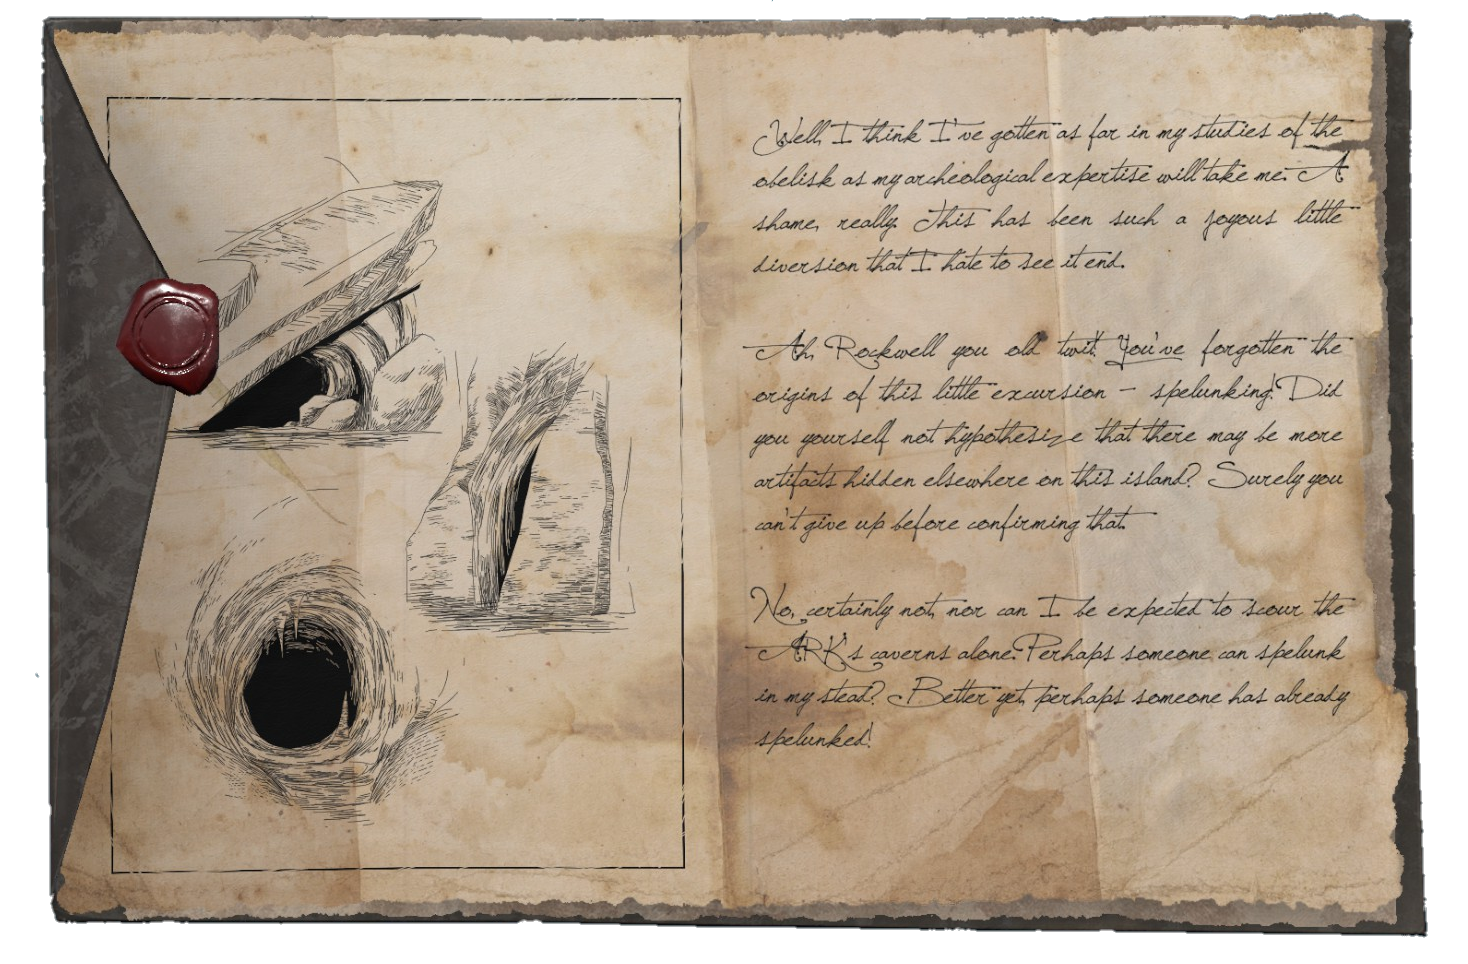 Well, I think I've gotten as far in my studies of the
obelisk as my archeological expertise will take me. A
shame, really. This has been such a joyous little
diversion that I hate to see it end.
Ah, Rockwell you old twit! You've forgotten the
origins of this little excursion - spelunking! Did
you yourself not hypothesize that there may be more
artifacts hidden elsewhere on this island? Surely you
can't give up before confirming that.
No, certainly not, nor can I be expected to scour the
ARK's caverns alone. Perhaps someone can spelunk
in my stead? Better yet, perhaps someone has already
spelunked!